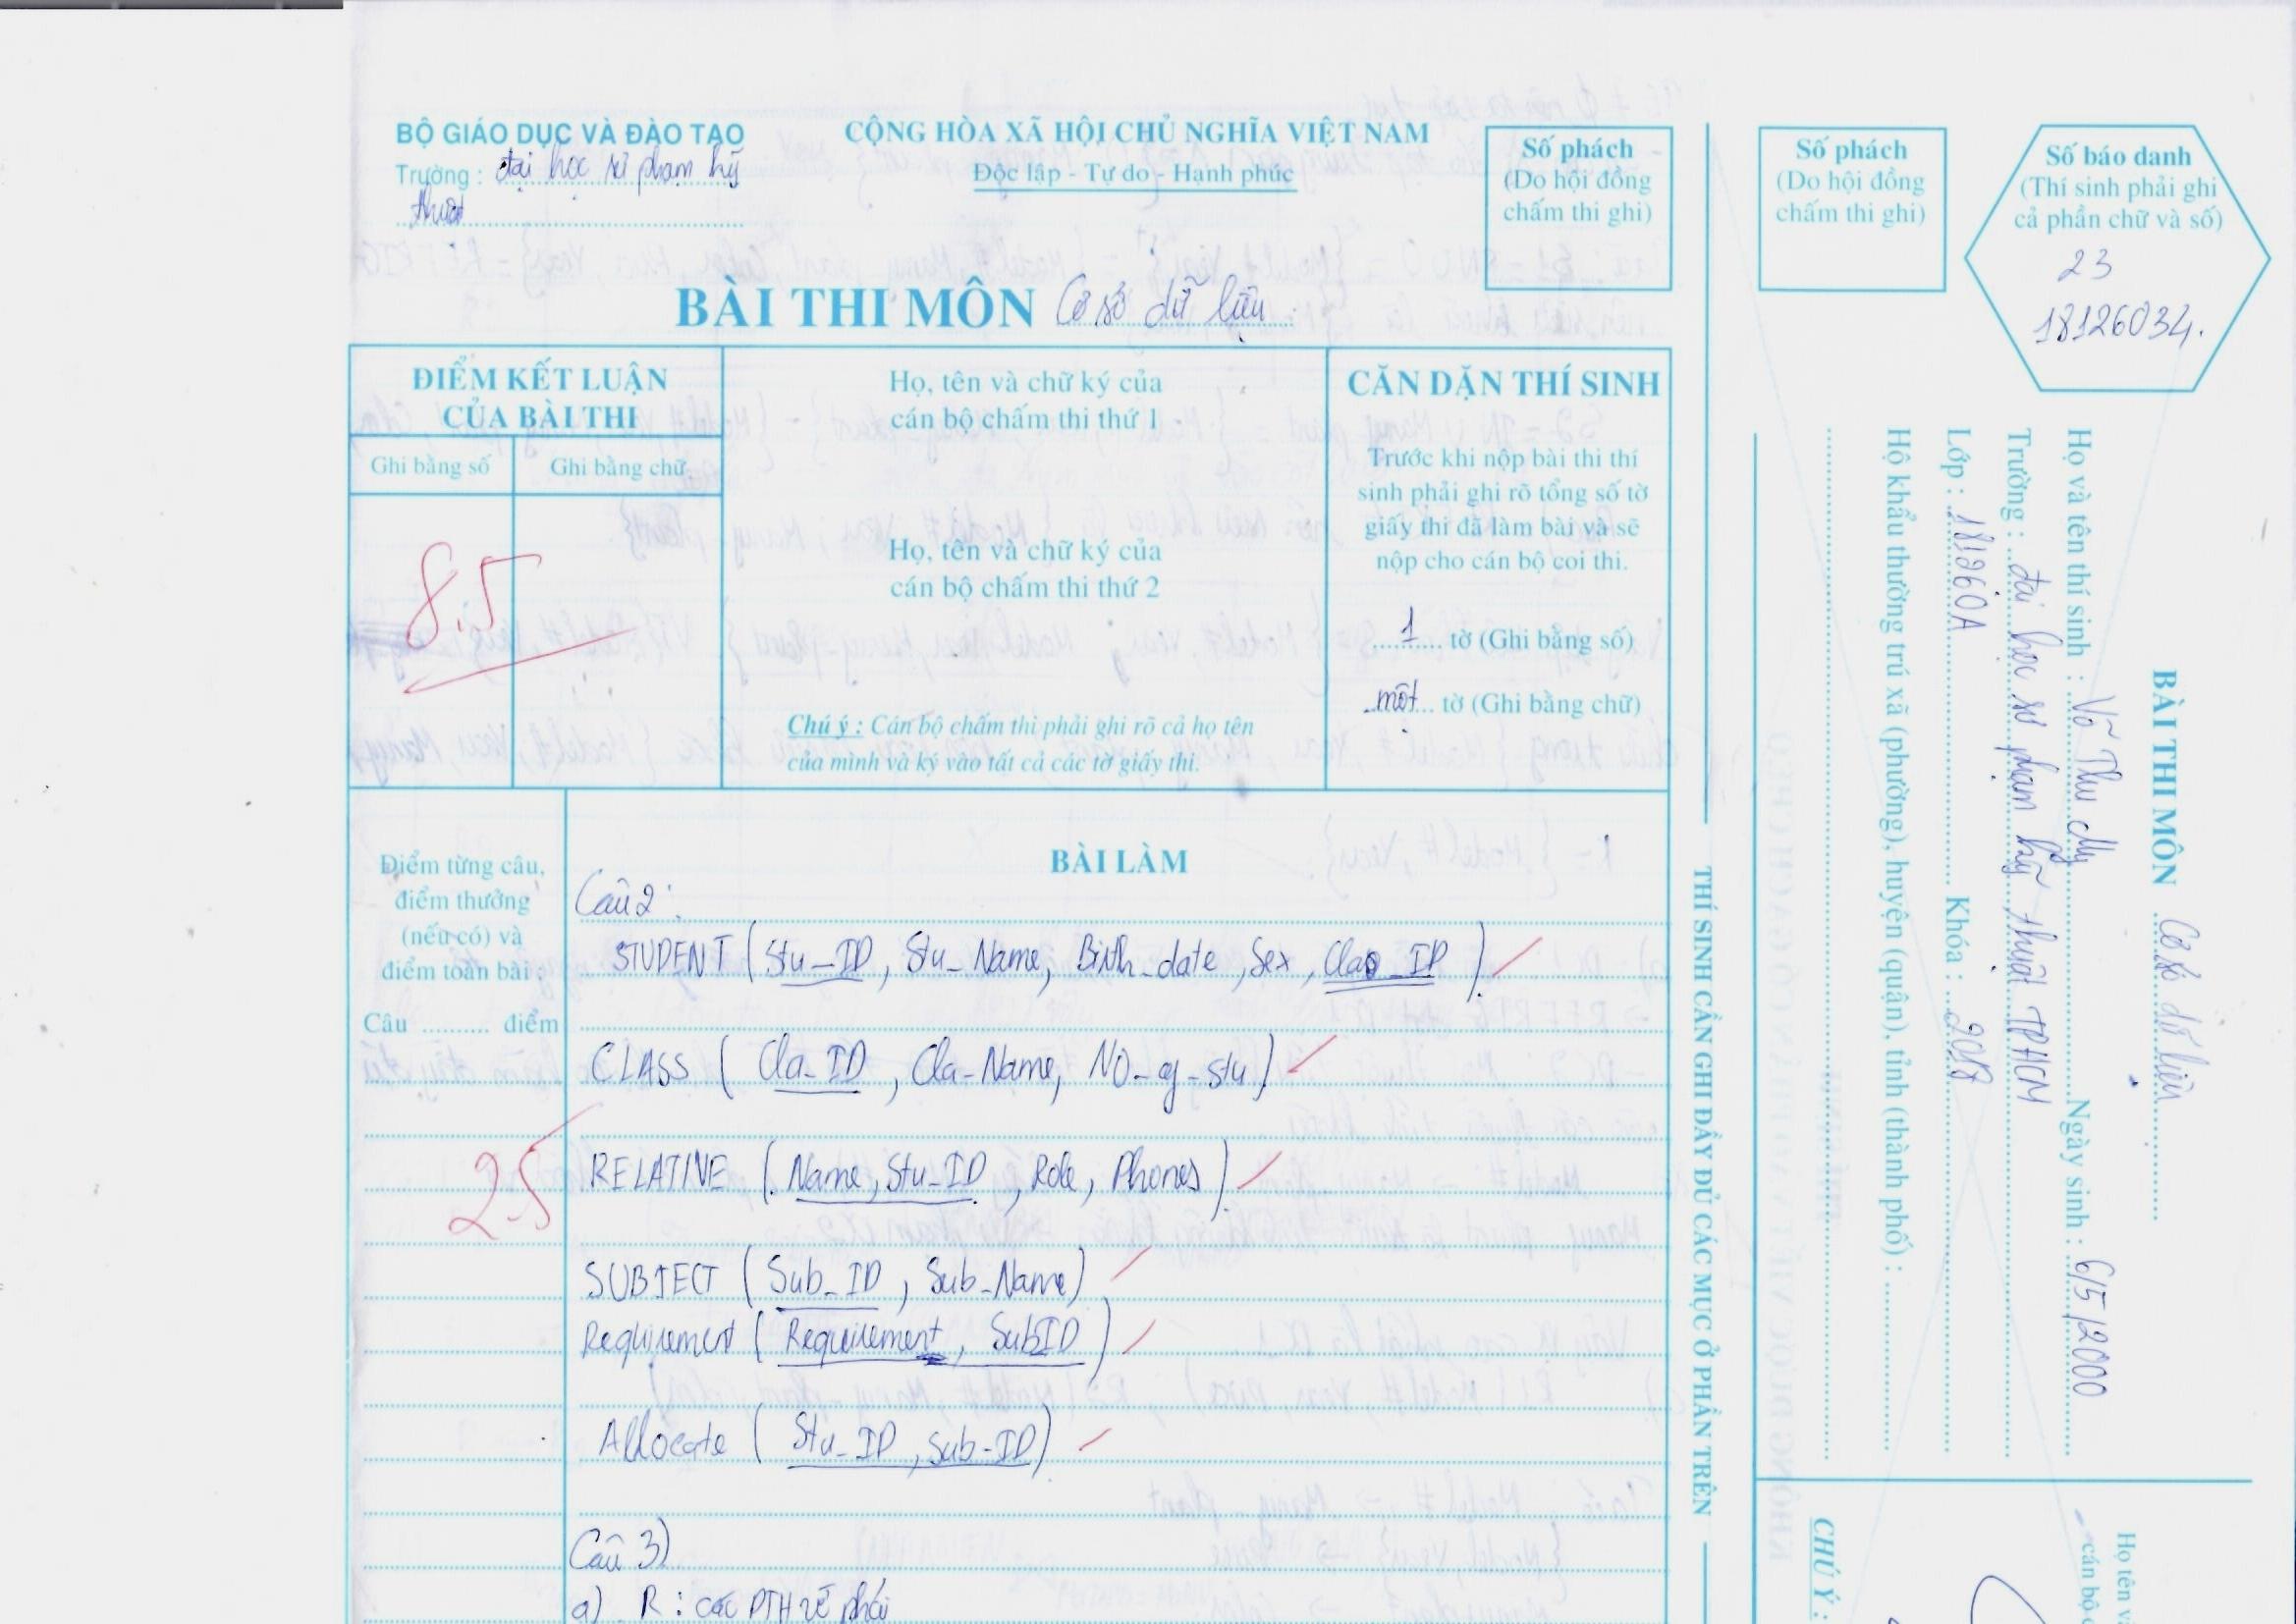 BỘ GIÁO DỤC VÀ ĐÀO TẠO
Trường : đại học sư phạm kỹ
thuật
CỘNG HÒA XÃ HỘI CHỦ NGHĨA VIỆT NAM
Độc lập - Tự do - Hạnh phúc
Số phách
(Do hội đồng
chấm thi ghi)
BÀI THI MÔN Cơ sở dữ liệu
ĐIỂM KẾT LUẬN
CỦA BÀI THI
Ghi bằng số
Ghi bằng chữ
8.5
Họ, tên và chữ ký của
cán bộ chấm thi thứ 1
Họ, tên và chữ ký của
cán bộ chấm thi thứ 2
Chú ý : Cán bộ chấm thi phải ghi rõ cả họ tên
của mình và ký vào tất cả các tờ giấy thi.
CĂN DẶN THÍ SINH
Trước khi nộp bài thi thí
sinh phải ghi rõ tổng số tờ
giấy thi đã làm bài và sẽ
nộp cho cán bộ coi thi.
1 tờ (Ghi bằng số)
một tờ (Ghi bằng chữ)
Điểm từng câu,
điểm thưởng
(nếu có) và
điểm toàn bài :
Câu .......... điểm
2.5
BÀI LÀM
Câu 2 :
STUDENT (Stu_ID, Stu_Name, Birth_date, Sex, Clas_ID).
CLASS ( Cla_ID , Cla_Name, NO_of_stu)
RELATIVE ( Name, Stu_ID , Role, Phones).
SUBJECT ( Sub_ID , Sub_Name)
Requirement ( Requirement, SubID )
Allocate ( Stu_ID , Sub_ID)
Câu 3)
a) R : các PTH vế phải
THÍ SINH CẦN GHI ĐẦY ĐỦ CÁC MỤC Ở PHẦN TRÊN
Số phách
(Do hội đồng
chấm thi ghi)
Số báo danh
(Thí sinh phải ghi
cả phần chữ và số)
23
18126034.
BÀI THI MÔN Cơ sở dữ liệu
Họ và tên thí sinh : Võ Thu My Ngày sinh : 6/5/2000
Trường : đại học sư phạm kỹ thuật TPHCM
Lớp : 181260A Khóa : 2018
Hộ khẩu thường trú xã (phường), huyện (quận), tỉnh (thành phố) :
Họ tên và
cán bộ
CHÚ Ý :